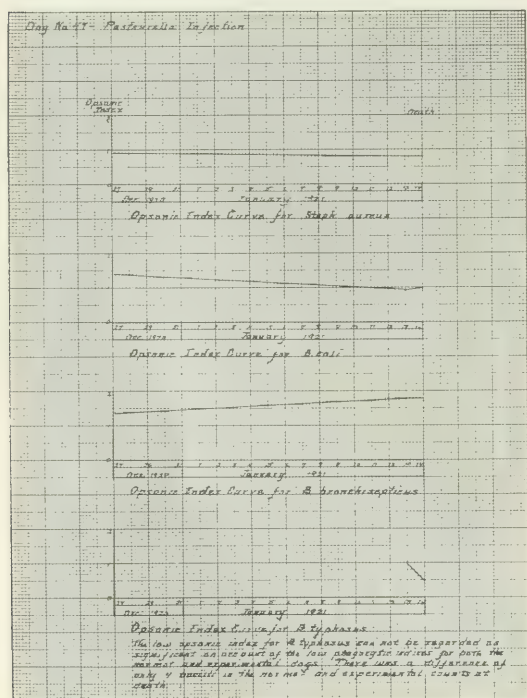 Dog No 47 - Pasteurella Injection
Opsonic
Index
Death
27 29 31 1 2 3 4 5 6 7 8 9 10 11 12 13 14
Dec 1920 January 1921
Opsonic Index Curve for Staph aureus
27 29 31 1 2 3 4 5 6 7 8 9 10 11 12 13 14
Dec 1920 January 1921
Opsonic Index Curve for B. coli
27 29 31 1 2 3 4 5 6 7 8 9 10 11 12 13 14
Dec 1920 January 1921
Opsonic Index Curve for B bronchisepticus
27 29 31 1 2 3 4 5 6 7 8 9 10 11 12 13 14
Dec 1920 January 1921
Opsonic Index Curve for B typhosus
The low opsonic index for B typhosus can not be regarded as
significant on account of the low phagocytic indices for both the
normal and experimental dogs. There was a difference of
only 4 bacilli in the normal and experimental counts at
death.